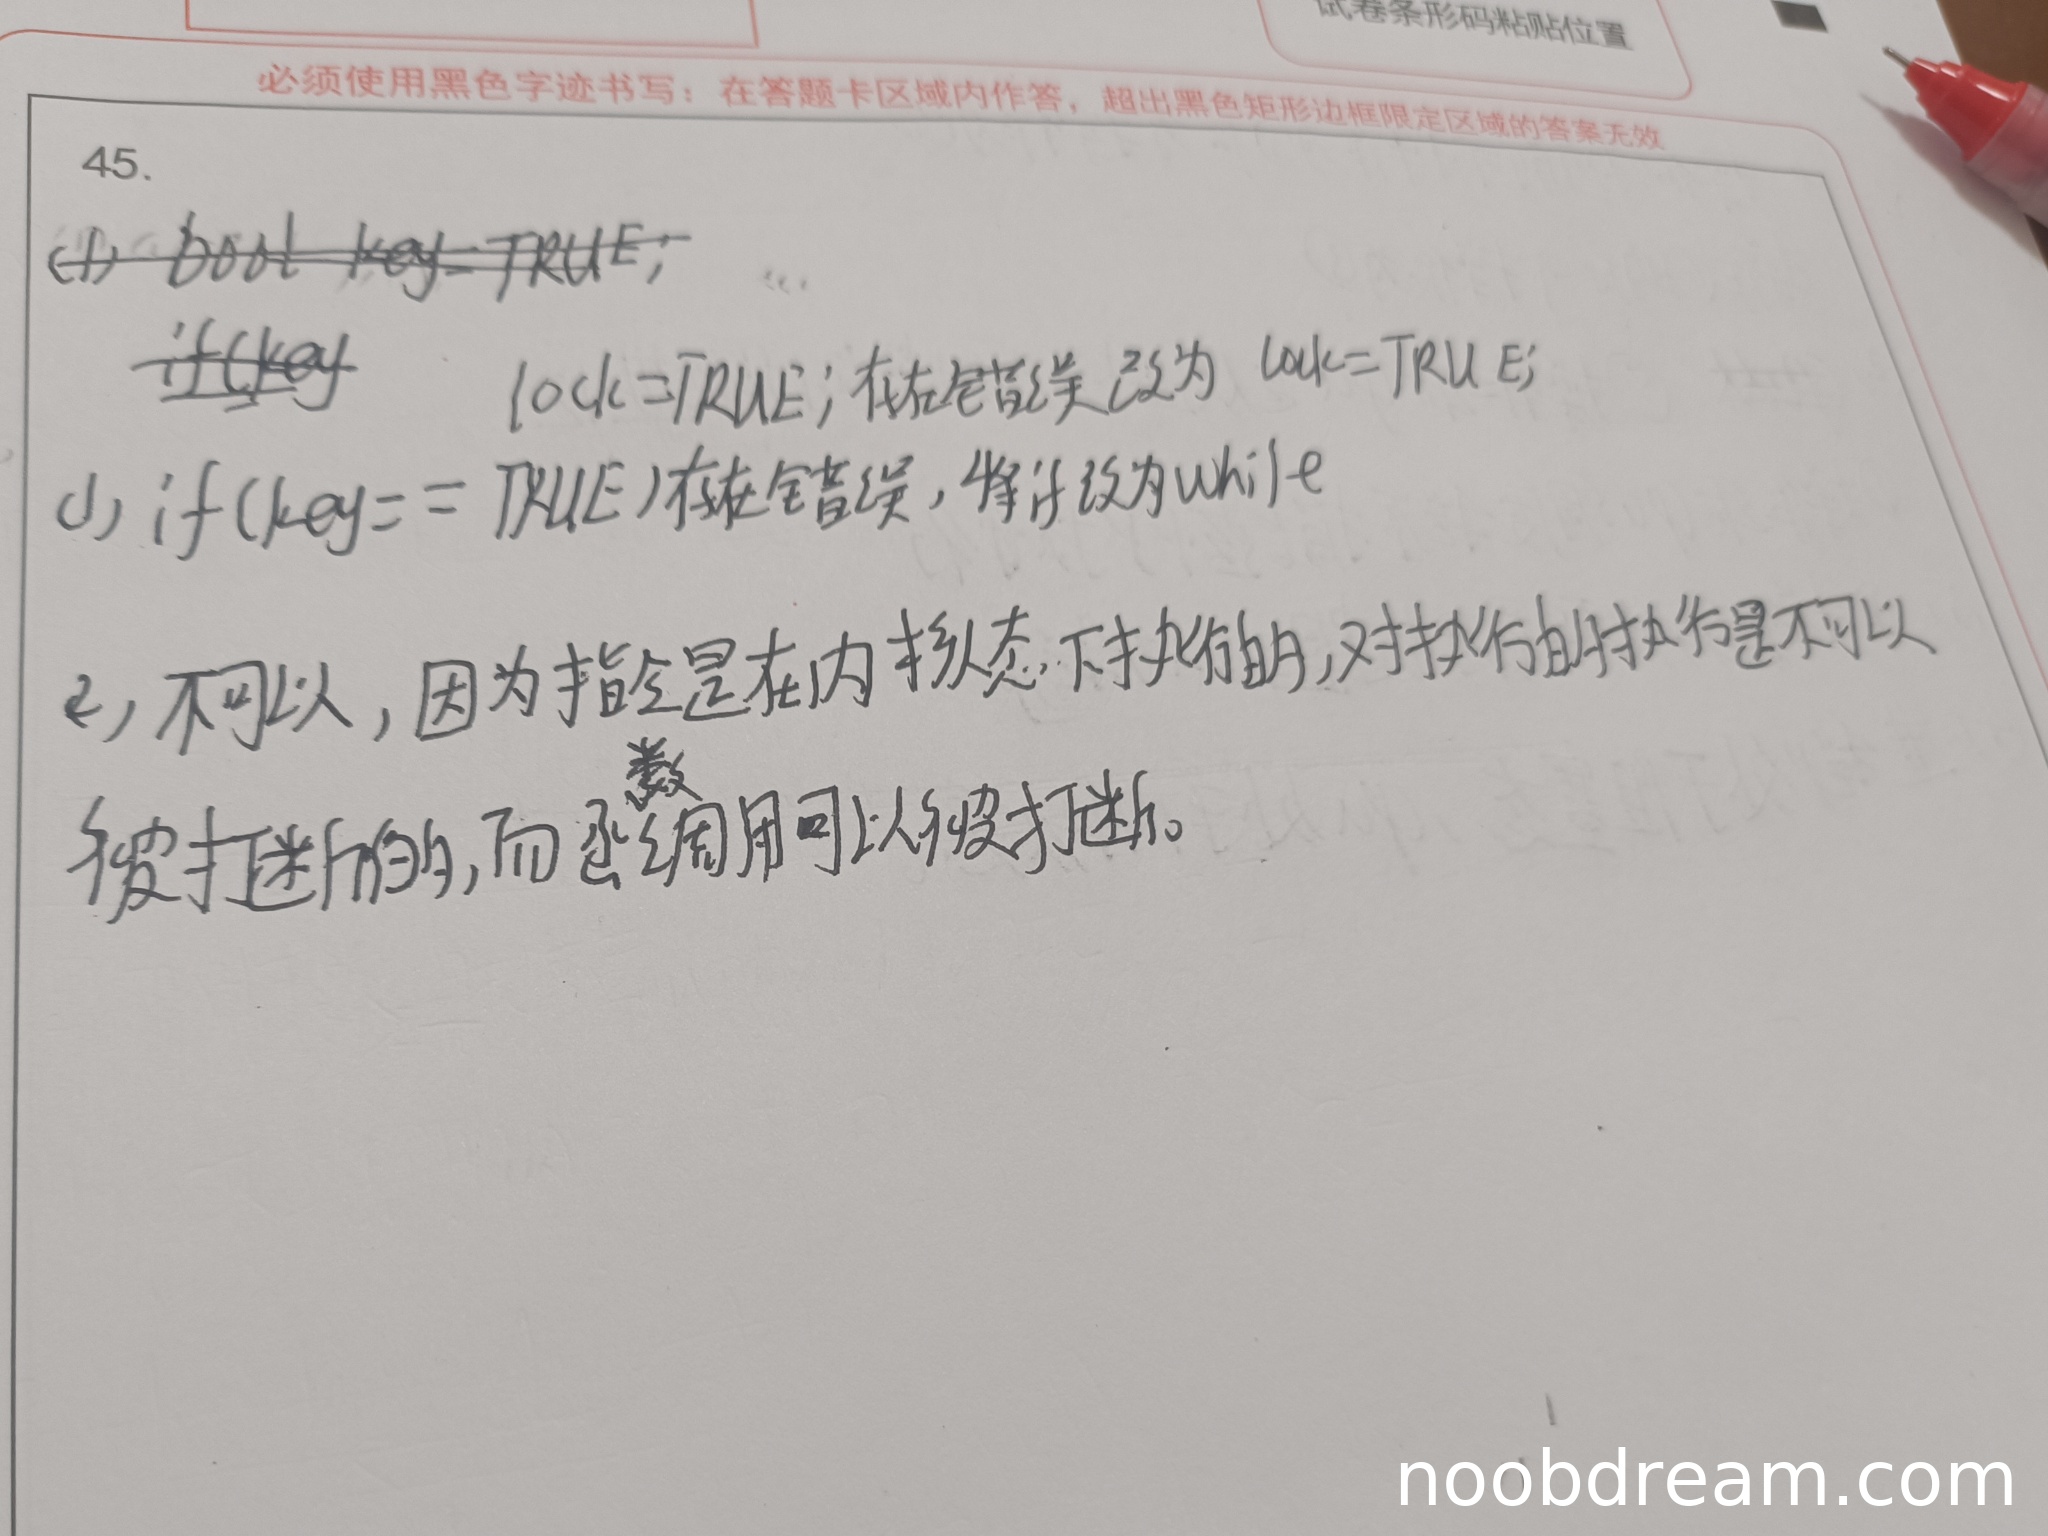 试卷条形码粘贴位置
必须使用黑色字迹书写：在答题卡区域内作答，超出黑色矩形边框限定区域的答案无效
45.
(1) bool key=TRUE;
if(key
lock=TRUE;存在错误改为 lock=TRUE;
(1) if(key==TRUE)存在错误,将if改为while
2) 不可以,因为指令是在内核态下执行的,对执行的执行是不可以
被打断的,而函数调用可以被打断。
noobdream.com